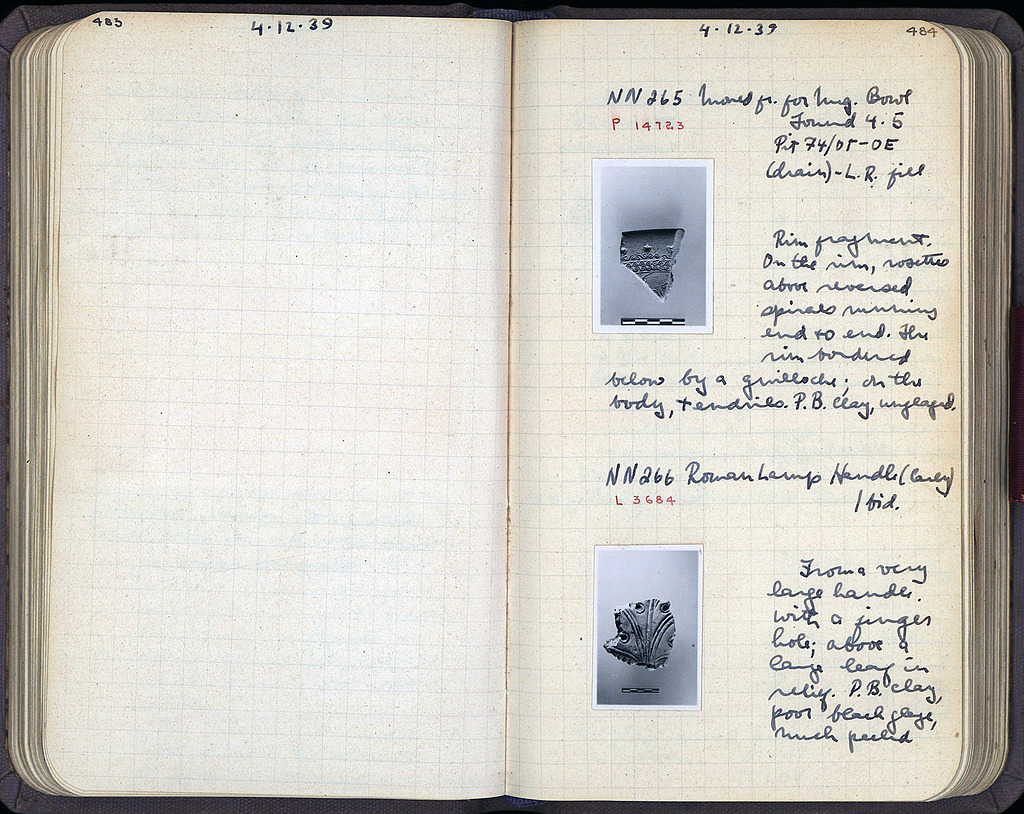 483
4·12·39
4·12·39
484
NN 265 Mould fr. for Meg. Bowl
P 14723
Found 4·5
Pit 74/ΟΓ-ΟΕ
(drain)-L.R. fill
Rim fragment.
On the rim, rosettes
above reversed
spirals running
end to end. The
rim bordered
below by a guilloche; on the
body, tendrils. P.B. clay, unglazed.
NN 266 Roman Lamp Handle (large)
L 3684
Ibid.
From a very
large handle.
with a finger
hole; above a
large leaf in
relief. P.B. clay,
poor black glaze,
much peeled